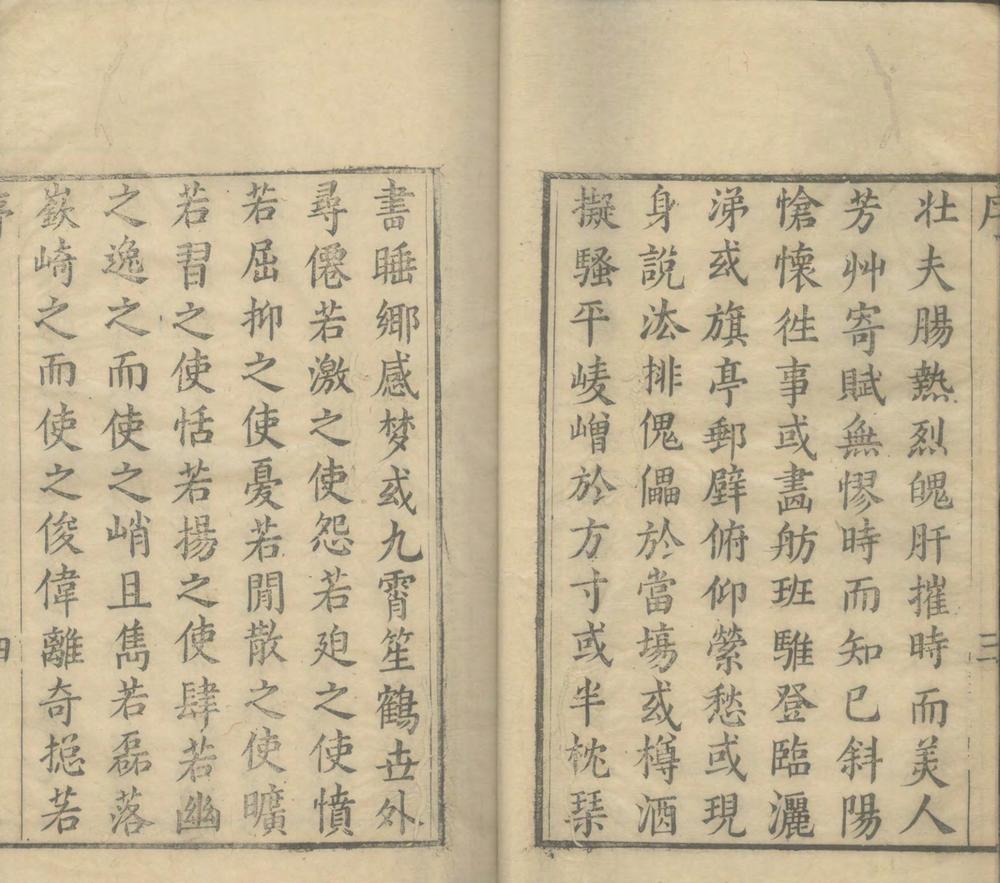 序
三
壮夫腸熱烈魄肝摧時而美人
芳艸寄賦無憀時而知已斜陽
愴懷徃事或畵舫班騅登臨灑
涕或旗亭郵壁俯仰縈愁或現
身說法排傀儡於當塲或樽酒
擬騷平崚嶒於方寸或半枕琹
書睡鄉感梦或九霄笙鶴世外
尋僊若激之使怨若廹之使憤
若屈抑之使憂若閒散之使曠
若習之使恬若揚之使肆若幽
之逸之而使之峭且雋若磊落
嶔崎之而使之俊偉離奇揔若
四